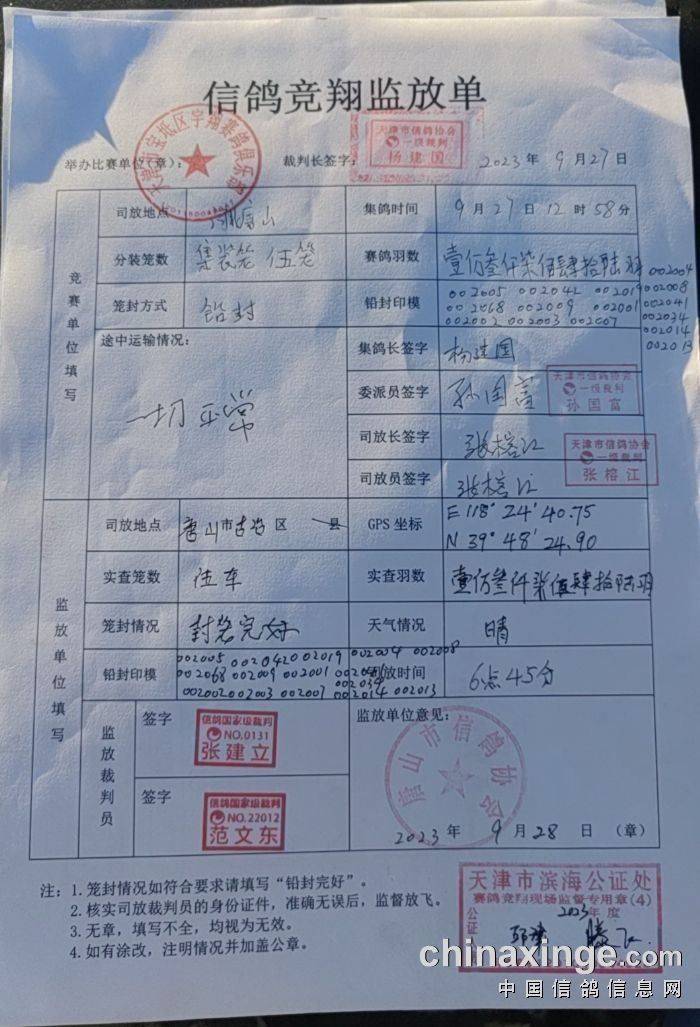 信鸽竞翔监放单
举办比赛单位(章):
天津市宝坻区宇翔赛鸽俱乐部
裁判长签字:
天津市信鸽协会
一级裁判
杨建国
2023年 9月27日
竞赛单位填写
司放地点 山
集鸽时间 9月27日12时58分
分装笼数 集装笼 伍笼
赛鸽羽数 壹佰叁仟柒佰肆拾陆羽
笼封方式 铅封
铅封印模 002005 002042 002019
002068 002009 002001
002002 002003 002007
002004
002008
002041
002034
002014
002013
途中运输情况:
一切正常
集鸽长签字 杨建国
委派员签字 孙国富
天津市信鸽协会
一级裁判
孙国富
司放长签字 张榕江
天津市信鸽协会
一级裁判
张榕江
司放员签字 张榕江
监放单位填写
司放地点 唐山市古冶区 县
GPS 坐标 E 118° 24' 40.75
N 39° 48' 24.90
实查笼数 伍车
实查羽数 壹佰叁仟柒佰肆拾陆羽
笼封情况 封签完好
天气情况 晴
铅封印模 002005 002042 002019 002004 002008
002068 002009 002001
002034
002002 002003 002007 002014 002013
司放时间 6点45分
监放裁判员
签字
信鸽国家级裁判
NO.0131
张建立
签字
信鸽国家级裁判
NO.22012
范文东
监放单位意见:
唐山市信鸽协会
2023年 9月28日 (章)
注:1. 笼封情况如符合要求请填写“铅封完好”。
2. 核实司放裁判员的身份证件,准确无误后,监督放飞。
3. 无章,填写不全,均视为无效。
4. 如有涂改,注明情况并加盖公章。
天津市滨海公证处
赛鸽竞翔现场监督专用章(4)
2023年度
公证
chinaxinge.com
中国信鸽信息网